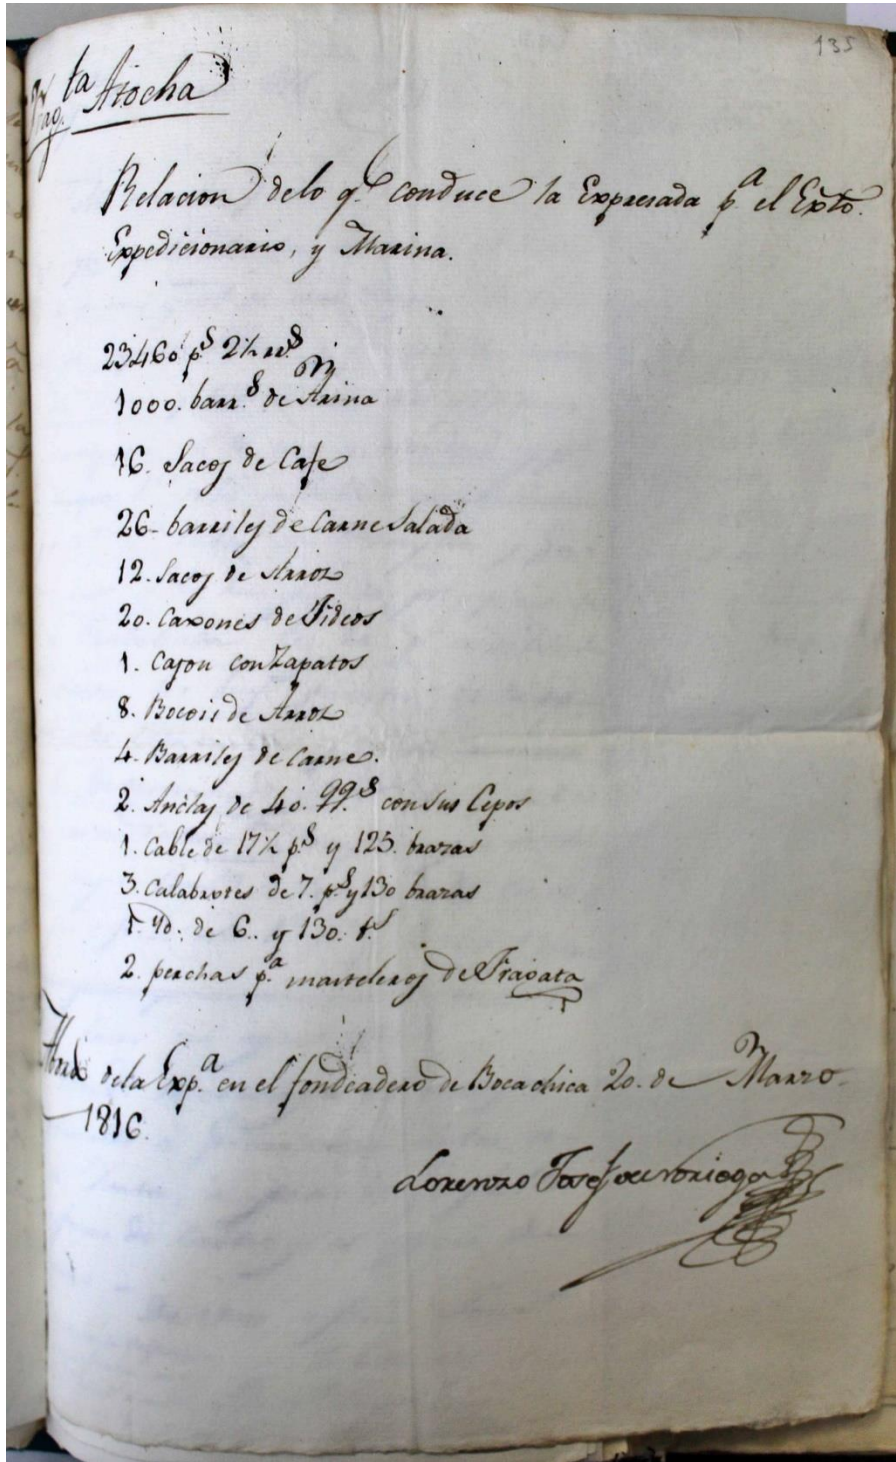 135
Frag.ta Atocha
Relacion delo q.e conduce la Expresada p.a el Exto.
Expedicionario, y Marina.
23460 p.s 2½ rr.s
1000. barr.s de Arina
16. Sacos de Cafe
26- barriles de Carne Salada
12. Sacos de Arroz
20. Caxones de Fideos
1. Cajon con Zapatos
8. Bocois de Arroz
4. Barriles de Carne.
2. Anclas de 40. qq.s con sus Cepos
1. Cable de 17½ p.s y 125. brazas
3. Calabrotes de 7. p.s y 130 brazas
1. Yd. de 6.. y 130. b.s
2. perchas p.a masteleros de Fragata
Abordo dela Exp.a en el fondeadero de Bocachica 20. de Marzo
1816.
Lorenzo Josef de Noriega